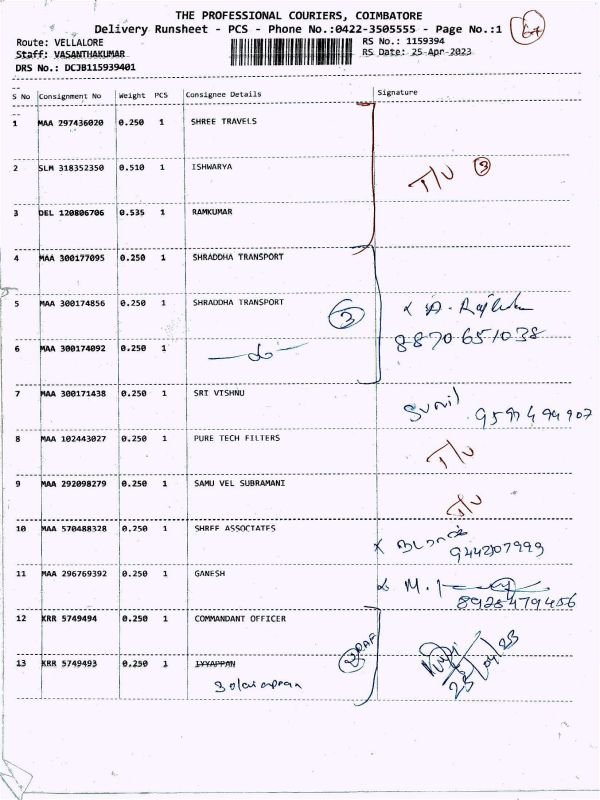 THE PROFESSIONAL COURIERS, COIMBATORE
Delivery Runsheet - PCS - Phone No.:0422-3505555 - Page No.:1
Route: VELLALORE RS No.: 1159394
Staff: VASANTHAKUMAR RS Date: 25-Apr-2023
DRS No.: DCJB115939401
S No Consignment No Weight PCS Consignee Details Signature
1 MAA 297436020 0.250 1 SHREE TRAVELS
2 SLM 318352350 0.510 1 ISHWARYA T/U 3
3 DEL 120806706 0.535 1 RAMKUMAR
4 MAA 300177095 0.250 1 SHRADDHA TRANSPORT
5 MAA 300174856 0.250 1 SHRADDHA TRANSPORT 3
8870651038
6 MAA 300174092 0.250 1
7 MAA 300171438 0.250 1 SRI VISHNU Sunil
8 MAA 102443027 0.250 1 PURE TECH FILTERS T/U
9 MAA 292098279 0.250 1 SAMU VEL SUBRAMANI T/U
10 MAA 570488328 0.250 1 SHREE ASSOCIATES
9442207999
11 MAA 296769392 0.250 1 GANESH M.
8925479456
12 KRR 5749494 0.250 1 COMMANDANT OFFICER
RAF
13 KRR 5749493 0.250 1 IYYAPPAN 2 25/04/23